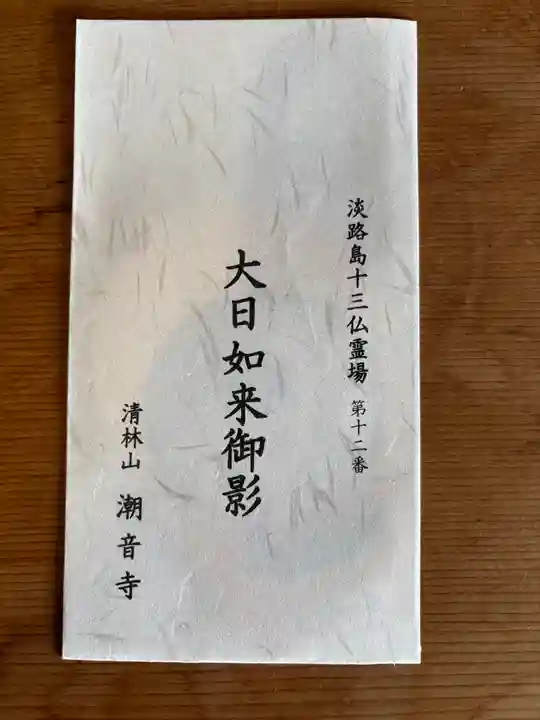 淡路島十三仏霊場 第十二番
大日如来御影
清林山 潮音寺